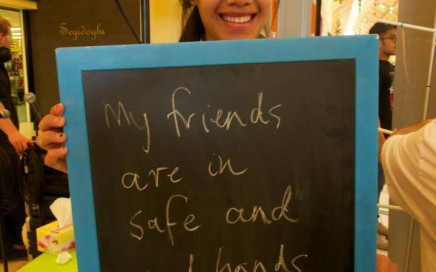 Seyidoğlu
My friends
are in
safe and
hands